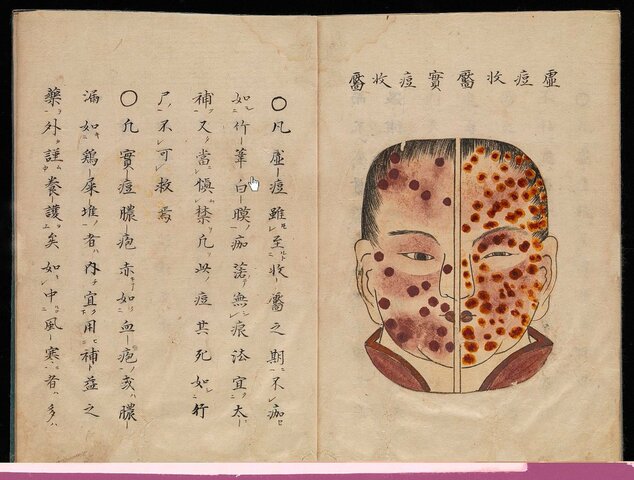 虛痘收靨實痘收靨
〇凡虛痘雖至收靨之期不痂
如竹葦白膜痂落無痕法宜太
補又當愼禁凡此痘其死如行
尸不可救焉
〇凡實痘膿疱赤如血疱膿
漏如鷄屎堆者內宜用補益之
藥外謹養護矣如中風寒者多